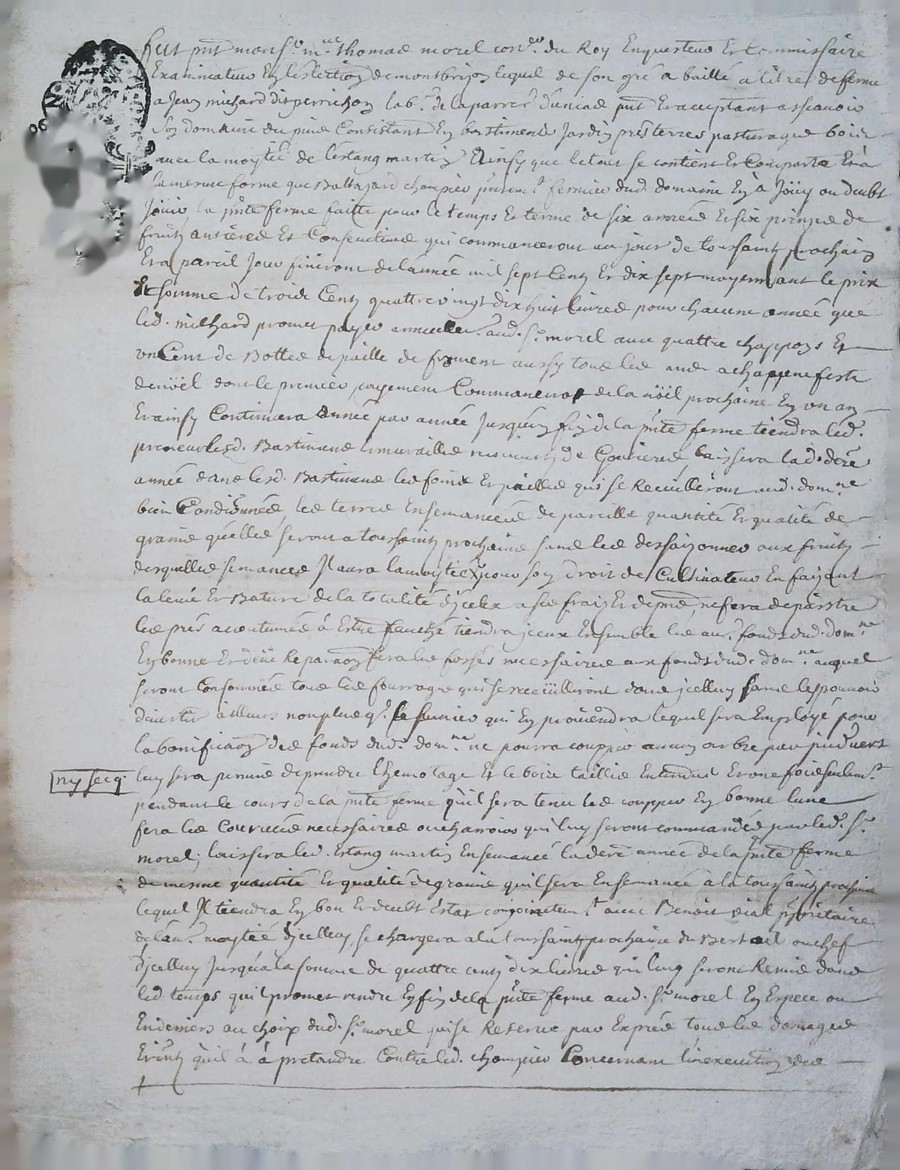 fut pnt mons.r m.re Thomas morel con.er du Roy Enquesteur Et Commissaire
Examinateur En l'eslection de montbrizon lequel de son gré a baillé a titre de ferme
a Jean michard dit perrichon lab.r de la parr.e pnt Et aceptant asscavoir
Son domaine du Consistant En bastiments Jardin prés terres pasturage bois
avec la moytié de l'estang martin Ainsy que le tout se contient Et Comporte Et à
la mesme forme que Baltazard champier fermier dud. domaine En à Joüy ou deubt
Joüir, la pnte ferme faitte pour le temps Et terme de six années Et six prinzes de
fruits antieres Et Consecutives qui commanceront au jour de toussaints prochain
Et a pareil Jour finiront de l'année mil sept Cents Et dix sept moyennant le prix
Et somme de trois Cents quattre vingt dix huit livres pour chacune année que
led. michard promet payer aud. s.r morel avec quattre chappons Et
un Cent de Bottes de paille de froment aussy tous les ans a chappene feste
de nöel dont le premier payement Commancera de la nöil prochaine En un an
Et ainsy Continuera Année par année Jusques en fin de la pnte ferme tiendra led.
preneur lesd. Bastiments Et murailles de Goutieres, laissera la d. dere
année dans lesd. Bastiments les foins Et pailles qui se Recuilliront aud. dom.ne
bien Condisionnés, les terres Ensemancées de pareille quantité Et qualité de
grains qu'elles seront a toussaints prochains sans les dessaizonner aux fruits
desquelles semances Jl aura la moytié pour son Droit de Cultivateur En faizant
la levée Et Bature de la totalité d'jcelux a ses fraix Et depens, ne fera depaistre
les prés acoutumés à Estre fauchés tiendra jceux Ensemble les au.s fonds dud. dom.ne
En bonne Et deüe Reparaon fera les fossés necessaires aux fonds dud. dom.ne auquel
seront Consommés tous les fourrages qui se recuilliront dans jcelluy sans les pouvoir
divertir ailleurs non plus q. le fumier qui En proviendra lequel sera Employé pour
la bonificaon des fonds dud. dom.ne ne pourra coupper aucun arbre par pied vers
ny secq luy sera permis de prendre l'hemotage Et le bois taillis Entendu Et une fois seulem.t
pendant le cours de la pnte ferme qu'il sera tenu les coupper En bonne lune
fera les Courvées necessaires ou charrois qui luy seront commandés par led. s.r
morel; laissera led. Estang martin Ensemancé la dere année de la pnte ferme
de mesme quantité Et qualité de grains qu'il sera Ensemancé a la toussaints prochains
lequel Jl tiendra En bon Et deubt Estat conjointem.t avec Benoit vial propriétaire
de l'au. moytié d'jcelluy, se chargera a la toussaints prochains du Bestail ou chef
d'jcelluy Jusques a la somme de quattre cents dix livres qui luy seront Remis dans
led temps qu'il promet rendre En fin de la pnte ferme aud. s.r morel En Espece ou
En deniers au choix dud. s.r morel qui se Reserve par Exprés tous les domages
Et jnts qu'il à à pretandre Contre led. champier Concernant l'inexecution des